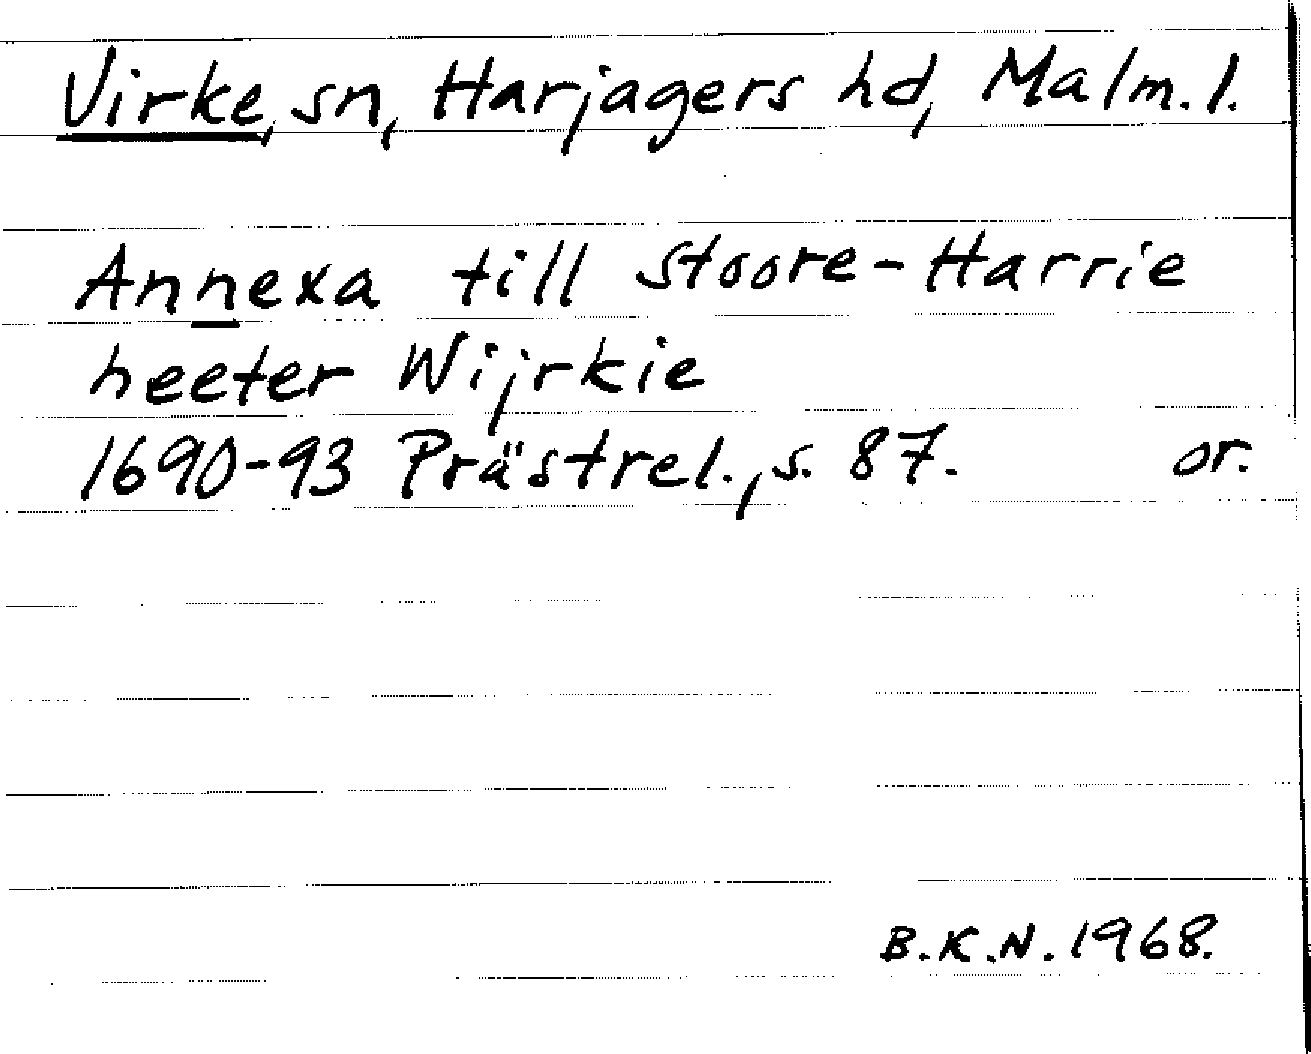 Virke, sn, Harjagers hd, Malm. l.
Annexa till Stoore-Harrie
heeter Wijrkie
1690-93 Prästrel., s. 87. or.
B.K.N. 1968.